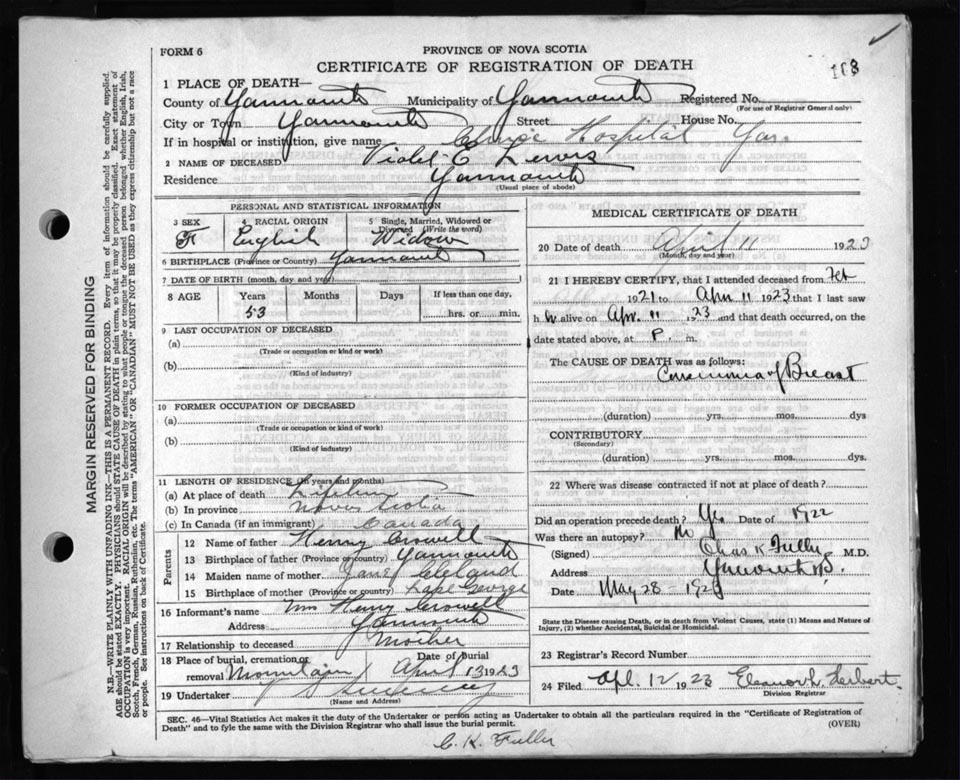 FORM 6
PROVINCE OF NOVA SCOTIA
CERTIFICATE OF REGISTRATION OF DEATH
1 PLACE OF DEATH—
County of Yarmouth Municipality of Yarmouth Registered No.
(For use of Registrar General only)
City or Town Yarmouth Street House No.
If in hospital or institution, give name Hospital Yar
2 NAME OF DECEASED Violet E Lewis
Residence Yarmouth
(Usual place of abode)
PERSONAL AND STATISTICAL INFORMATION
3 SEX F
4 RACIAL ORIGIN English
5 Single, Married, Widowed or Divorced (Write the word) Widow
6 BIRTHPLACE (Province or Country) Yarmouth
7 DATE OF BIRTH (month, day, and year)
8 AGE Years Months Days If less than one day,
53 hrs. or min.
9 LAST OCCUPATION OF DECEASED
(a)
(Trade or occupation or kind or work)
(b)
(Kind of industry)
10 FORMER OCCUPATION OF DECEASED
(a)
(Trade or occupation or kind of work)
(b)
(Kind of industry)
11 LENGTH OF RESIDENCE (in years and months)
(a) At place of death Lifetime
(b) In province Nova Scotia
(c) In Canada (if an immigrant) Canada
Parents
12 Name of father Henry Crowell
13 Birthplace of father (Province or country) Yarmouth
14 Maiden name of mother Jane Cleland
15 Birthplace of mother (Province or country) Cape George
16 Informant's name Mrs Henry Crowell
Address Yarmouth
17 Relationship to deceased Mother
18 Place of burial, cremation or removal Mountain Date of Burial April 13 1923
19 Undertaker Sweeney
(Name and Address)
MEDICAL CERTIFICATE OF DEATH
20 Date of death April 11 1923
(Month, day and year)
21 I HEREBY CERTIFY, that I attended deceased from Feb
1921 to Apr 11 1923 that I last saw
h alive on Apr. 11 1923 and that death occurred, on
date stated above, at P. m.
The CAUSE OF DEATH was as follows:
Carcinoma of Breast
(duration) yrs. mos. dys
CONTRIBUTORY
(Secondary)
(duration) yrs. mos. dys
22 Where was disease contracted if not at place of death?
Did an operation precede death? Yes Date of 1922
Was there an autopsy? No
(Signed) Chas K Fuller M.D.
Address Yarmouth
Date May 28 1923
State the Disease causing Death, or in death from Violent Causes, state (1) Means and Nature of
Injury, (2) whether Accidental, Suicidal or Homicidal.
23 Registrar's Record Number
24 Filed Apl. 12 1923 Eleanor L. Herbert.
Division Registrar
SEC. 46—Vital Statistics Act makes it the duty of the Undertaker or person acting as Undertaker to obtain all the particulars required in the "Certificate of Registration of
Death" and to fyle the same with the Division Registrar who shall issue the burial permit. (OVER)
C. K. Fuller
MARGIN RESERVED FOR BINDING
N.B.—WRITE PLAINLY WITH UNFADING INK—THIS IS A PERMANENT RECORD. Every item of information should be carefully supplied.
AGE should be stated EXACTLY. PHYSICIANS should STATE CAUSE OF DEATH in plain terms, so that it may be properly classified. Exact statement of
OCCUPATION is very important. RACIAL ORIGIN will be described by stating to what people or tongue the deceased person belonged whether English, Irish,
Scotch, French, German, Russian, Ruthenian, etc. The terms "AMERICAN" OR "CANADIAN" MUST NOT BE USED as they express citizenship but not a race
or people. See instructions on back of Certificate.